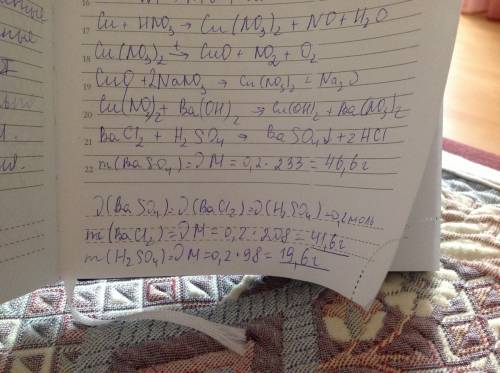 16
17 Cu + HNO3 → Cu(NO3)2 + NO + H2O
18 Cu(NO3)2 →t CuO + NO2 + O2
19 CuO + 2NaNO3 → Cu(NO3)2 + Na2O
20 Cu(NO3)2 + Ba(OH)2 → Cu(OH)2 + Ba(NO3)2
21 BaCl2 + H2SO4 → BaSO4↓ + 2HCl
22 m(BaSO4) = νM = 0,2 · 233 = 46,6 г
ν(BaSO4) = ν(BaCl2) = ν(H2SO4) = 0,2 моль
m(BaCl2) = νM = 0,2 · 208 = 41,6 г
m(H2SO4) = νM = 0,2 · 98 = 19,6 г